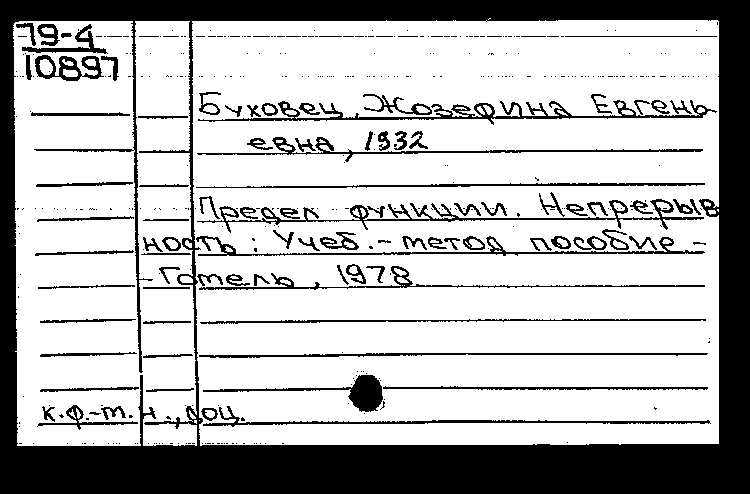 79-4
10897
Буховец, Жозефина Евгень
евна, 1932
Предел функции. Непрерыв
ность: Учеб.-метод пособие -
- Гомель, 1978
к.ф.-м.н., доц.